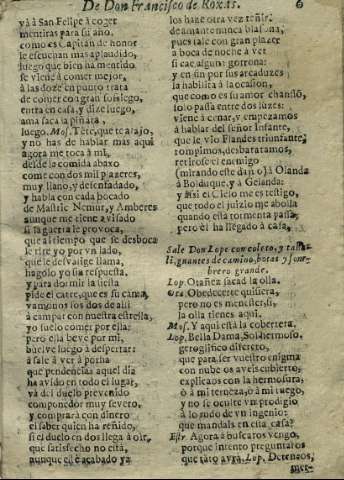 De Don Francisco de Roxas. 6
và à San Felipe à coger
mentiras para su año,
como es Capitàn de honor
le escuchan mas aplaudido,
luego que bien ha mentido
se viene à comer mejor,
à las doze en punto trata
de comer con gran sossiego,
entra en casa, y dize luego,
ama saca la piñata,
luego. Mos. Tète, que te atajo,
y no has de hablar mas aqui
agora me toca à mi,
desde la comida abaxo
come con dos mil plazeres,
muy llano, y desenfadado,
y habla con cada bocado
de Mastric Nemur, y Amberes
aunque me tiene avisado
si la guerra le provoca,
que al tiempo que se desboca
le tire yo por un lado,
que le desvalige llama,
hagolo yo sin respuesta,
y para dormir la siesta
pide el catre, que es su cama,
vamonos los dos de alli
à campar con nuestra estrella,
yo suelo comer por ella:
pero ella beve por mi,
buelve luego à despertar:
à sale à ver à porfia
que pendencias aquel dia
ha avido en todo el lugar,
và del duelo prevenido
componedor muy severo,
y comprarà con dinero
el saber quien ha reñido,
si el duelo en dos llega à oir,
que satisfecho no està,
aunque estè acabado ya
los haze otra vez reñir:
de amante nunca blasona,
pues sale con gran plazer
a boca de noche à ver
si cae alguna gorrona;
y en fin por sus arcaduzes
la habilita à la ocasion,
que como es su amor chanflo,
solo passa entre dos luzes:
viene à cenar, y empezamos
à hablar del señor Infante,
que le viò Flandes triunfante;
rompimos, desbaratamos,
retiròse el enemigo
(mirando este daño) à Olanda
à Bolduque, y à Gelanda:
y assi el Cielo me es testigo,
que todo el juizio me abolla
quando està tormenta passa;
pero èl ha llegado à casa,
Sale Don Lope con coleto, y
guantes de camino, botas y som-
brero grande.
Lop. Otañez sacad la olla.
Ota Obedecerte quisiera,
pero no es menester, si,
la olla tienes aqui.
Mos. Y aqui està la cobertera.
Lop. Bella Dama, Sol hermoso,
geroglifico discreto,
que para ser vuestro enigma
con nube os aveis cubierto;
explicaos con la hermosura,
ò à mi terneza, ò à mi luego,
y no se oculte un prodigio
à lo rudo de un ingenio:
que mandais en esta casa?
Estr Agora à buscaros vengo,
porque intento preguntaros
que tato avrà. Lop. Deteneos,
mer-